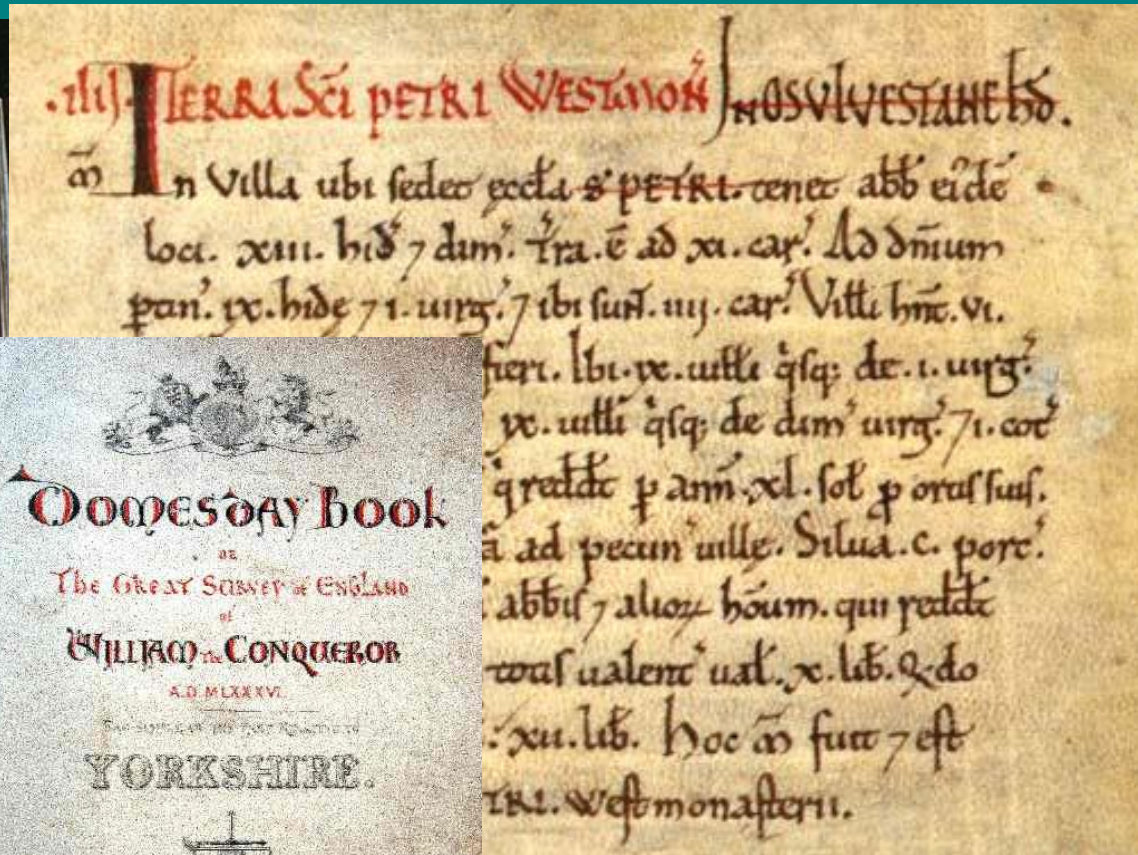 .iiij. TERRA SCĪ PETRI WESTMOÑ IN OSVLVESTANE HĐ.
m̄ In Villa ubi sedet æccła S PETRI. tenet abb̄ eiꝰdē
loci. xiii. hid̄ ⁊ dim̄. Tr̄a. ē ad xi. car̄. Ad dn̄ium
ptin̄. ix. hidę ⁊ i. uirḡ. ⁊ ibi sun̄t. iiij. car̄. Vilłi hn̄t. vi.
fieri. Ibi. ix. uilłi q̄sq; de. i. uirḡ.
ix. uilłi q̄sq; de dim̄ uirḡ. ⁊ i. cot̄
q̄ redd̄t p ann̄. xl. soł p ortis suis.
ad pecun̄ uillę. Silua. c. porc̄.
abb̄is ⁊ alioꝝ houm̄. qui redd̄t
totis ualent̄ uał. x. lib̄. Q̄do
xii. lib̄. Hoc m̄ fuit ⁊ est
TRI. Westmonasterii.
DOMESDAY BOOK
OR
The GREAT SURVEY of ENGLAND
of
WILLIAM the CONQUEROR
A.D. MLXXXVI.
YORKSHIRE.